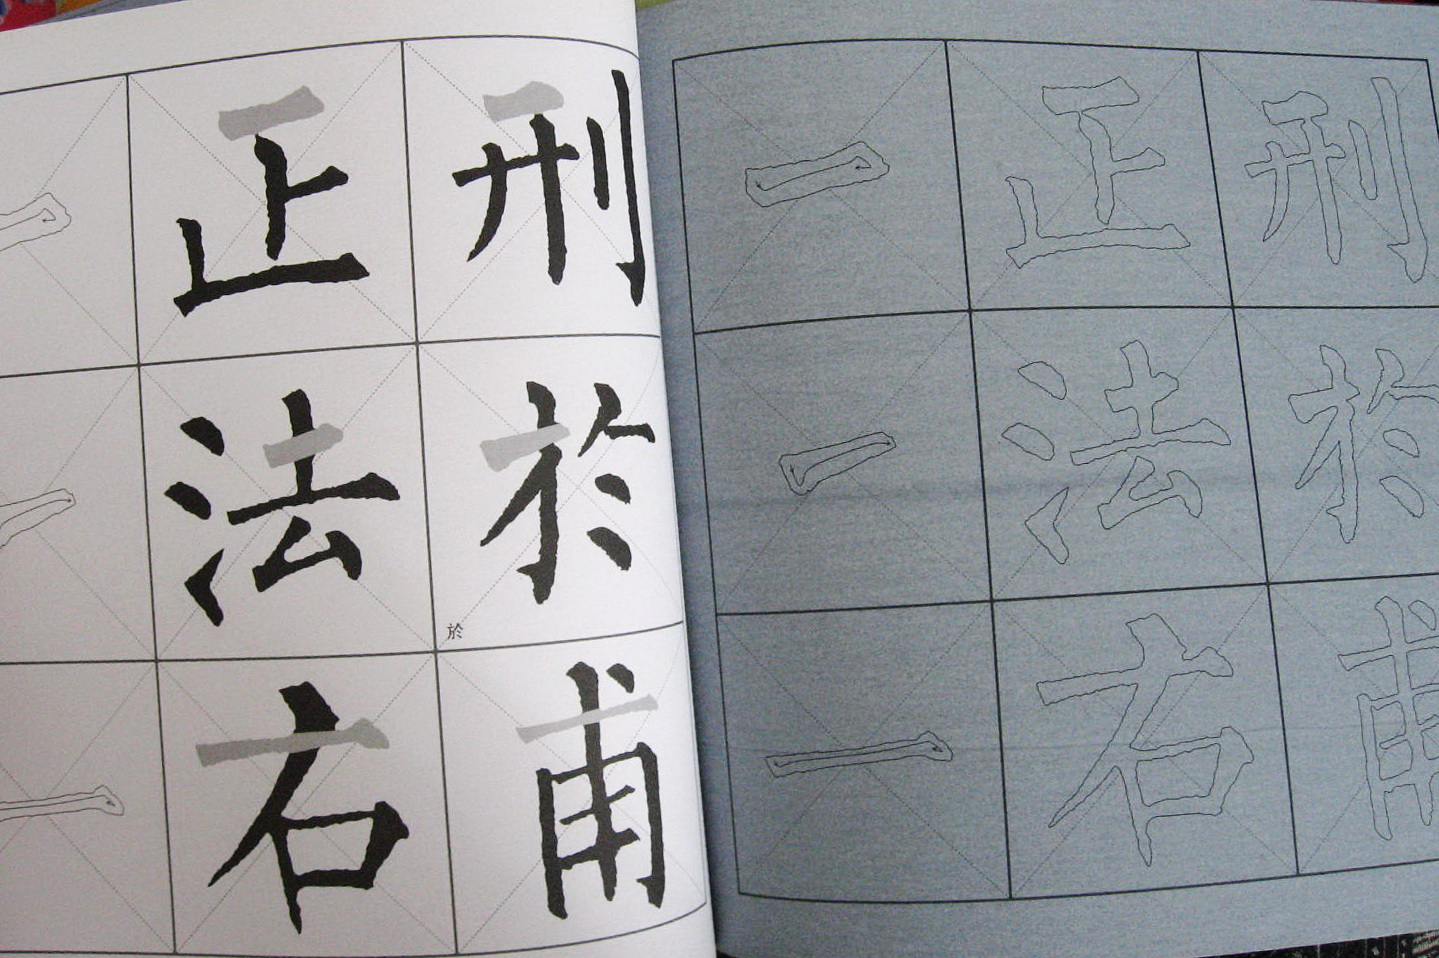 一 正 刑
一 法 於
於
一 右 甫
一 正 刑
一 法 於
一 右 甫